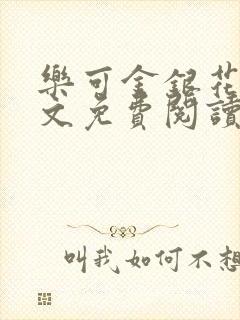 樂可金銀花
文免費閱讀
叫我如何不想